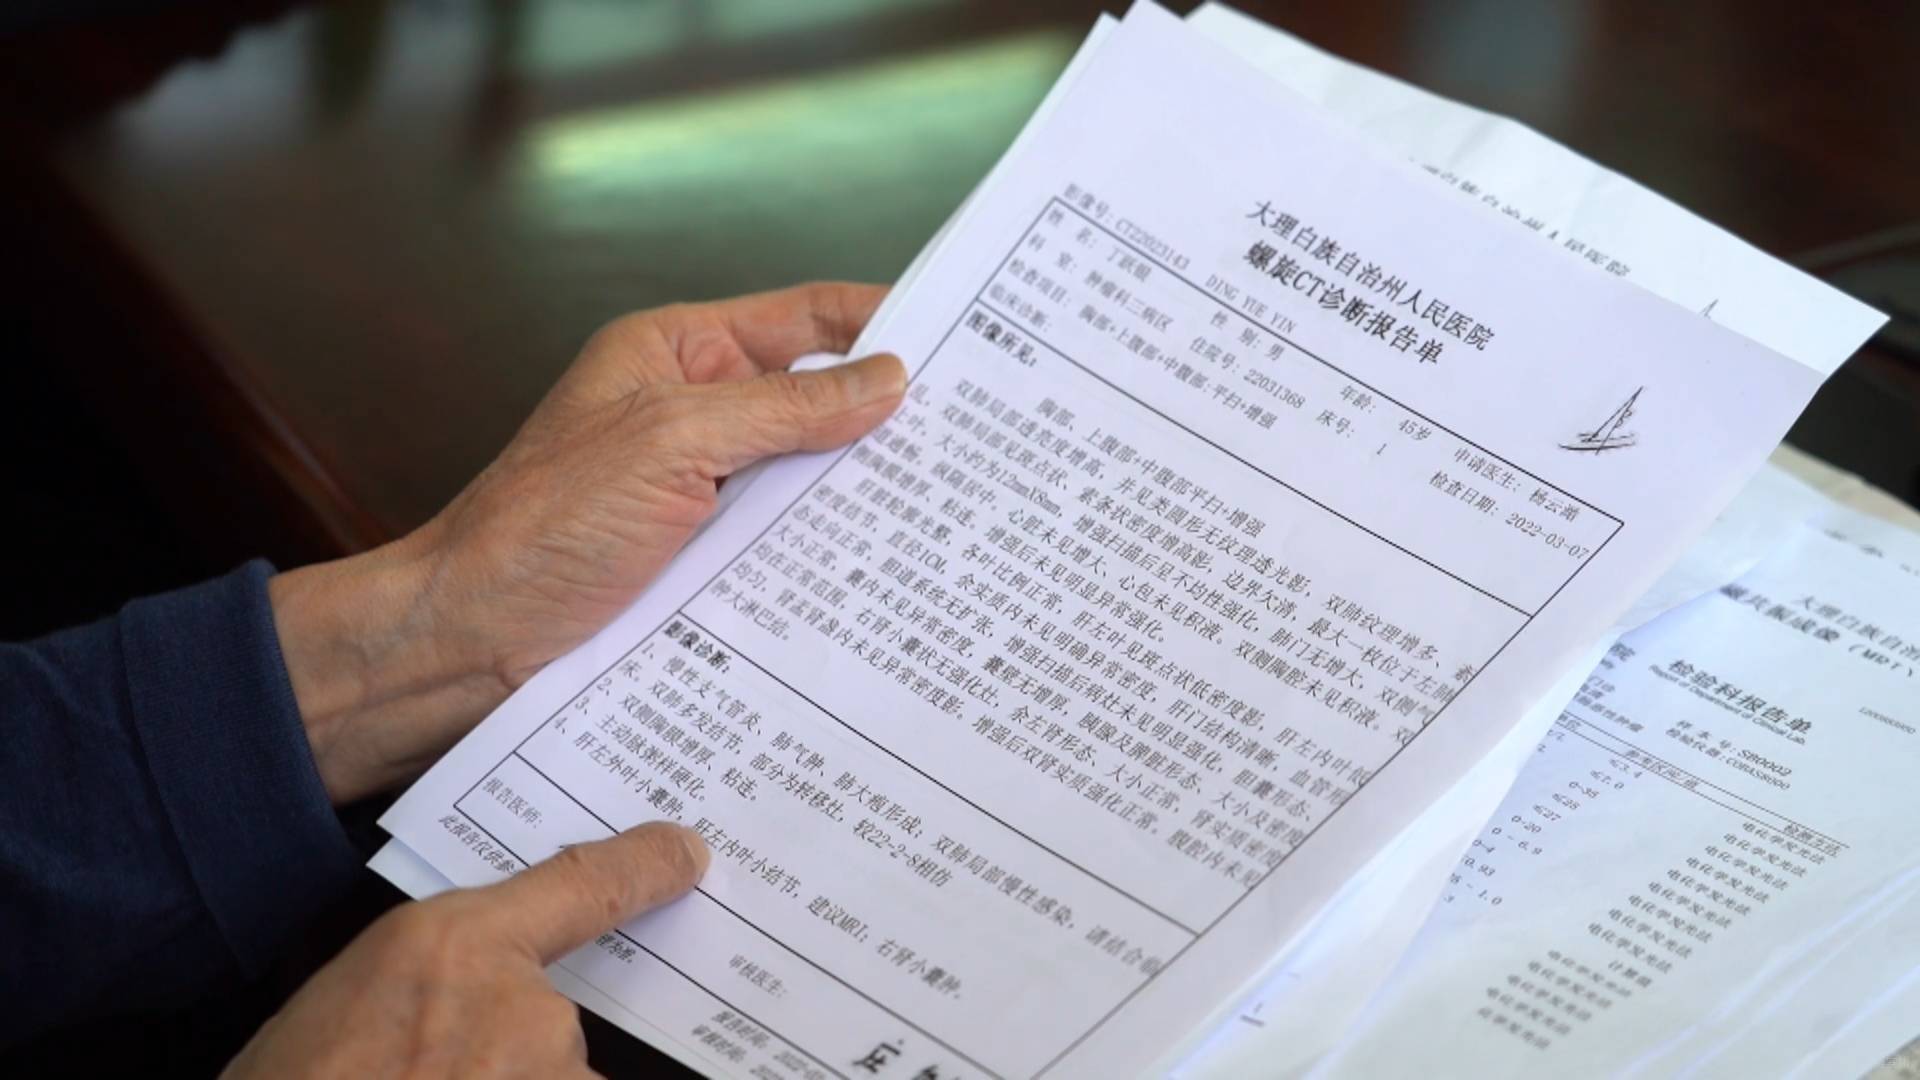 大理白族自治州人民医院
螺旋CT诊断报告单
影像号: CT22023143
姓 名: 丁跃银 DING YUE YIN 性 别: 男 年龄: 45岁 申请医生: 杨云
科 室: 肿瘤科二病区 住院号: 22031368 床号: 1 检查日期: 2022-03-07
检查项目: 胸部+上腹部+中腹部:平扫+增强
临床诊断:
图像所见:
胸部、上腹部+中腹部平扫+增强
双肺局部透亮度增高,并见类圆形无纹理透光影,双肺纹理增多、紊
乱,双肺局部见斑点状、索条状密度增高影,边界欠清,最大一枚位于左肺
上叶,大小约为12mmX8mm,增强扫描后呈不均性强化,肺门无增大,双侧气
道通畅。纵隔居中,心脏未见增大、心包未见积液。双侧胸腔未见积液。双
侧胸膜增厚、粘连。增强后未见明显异常强化。
肝脏轮廓光整,各叶比例正常,肝左叶见斑点状低密度影,肝左内叶低
密度结节,直径1CM,余实质内未见明确异常密度,肝门结构清晰,血管形
态走向正常,胆道系统无扩张,增强扫描后病灶未见明显强化,胆囊形态、
大小正常,囊内未见异常密度,囊壁无增厚,胰腺及脾脏形态、大小及密度
均在正常范围,右肾小囊状无强化灶,余左肾形态、大小正常,肾实质密度
均匀,肾盂肾盏内未见异常密度影。增强后双肾实质强化正常。腹腔内未见
肿大淋巴结。
影像诊断:
1、慢性支气管炎、肺气肿、肺大疱形成;双肺局部慢性感染,请结合临
床。双肺多发结节,部分为转移灶,较22-2-8相仿
2、双侧胸膜增厚、粘连。
3、主动脉粥样硬化。
4、肝左外叶小囊肿,肝左内叶小结节,建议MRI;右肾小囊肿。
报告医师:
审核医生:
此报告仅供参
报告时间: 2022-03
审核时间: 202
大理白族自治
检验科报告单
Report of Department of Clinical Lab.
样 本 号: SB0002
检验仪器: COBAS8000
检测方法
电化学发光法
电化学发光法
电化学发光法
电化学发光法
电化学发光法
电化学发光法
计算值
电化学发光法
电化学发光法